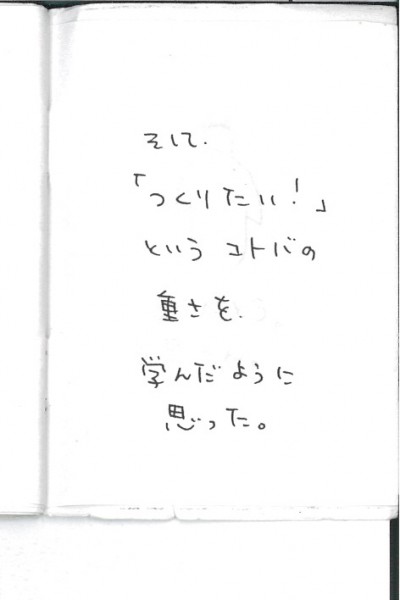 そして.
「つくりたい!」
という コトバの
重さを.
学んだように
思った。